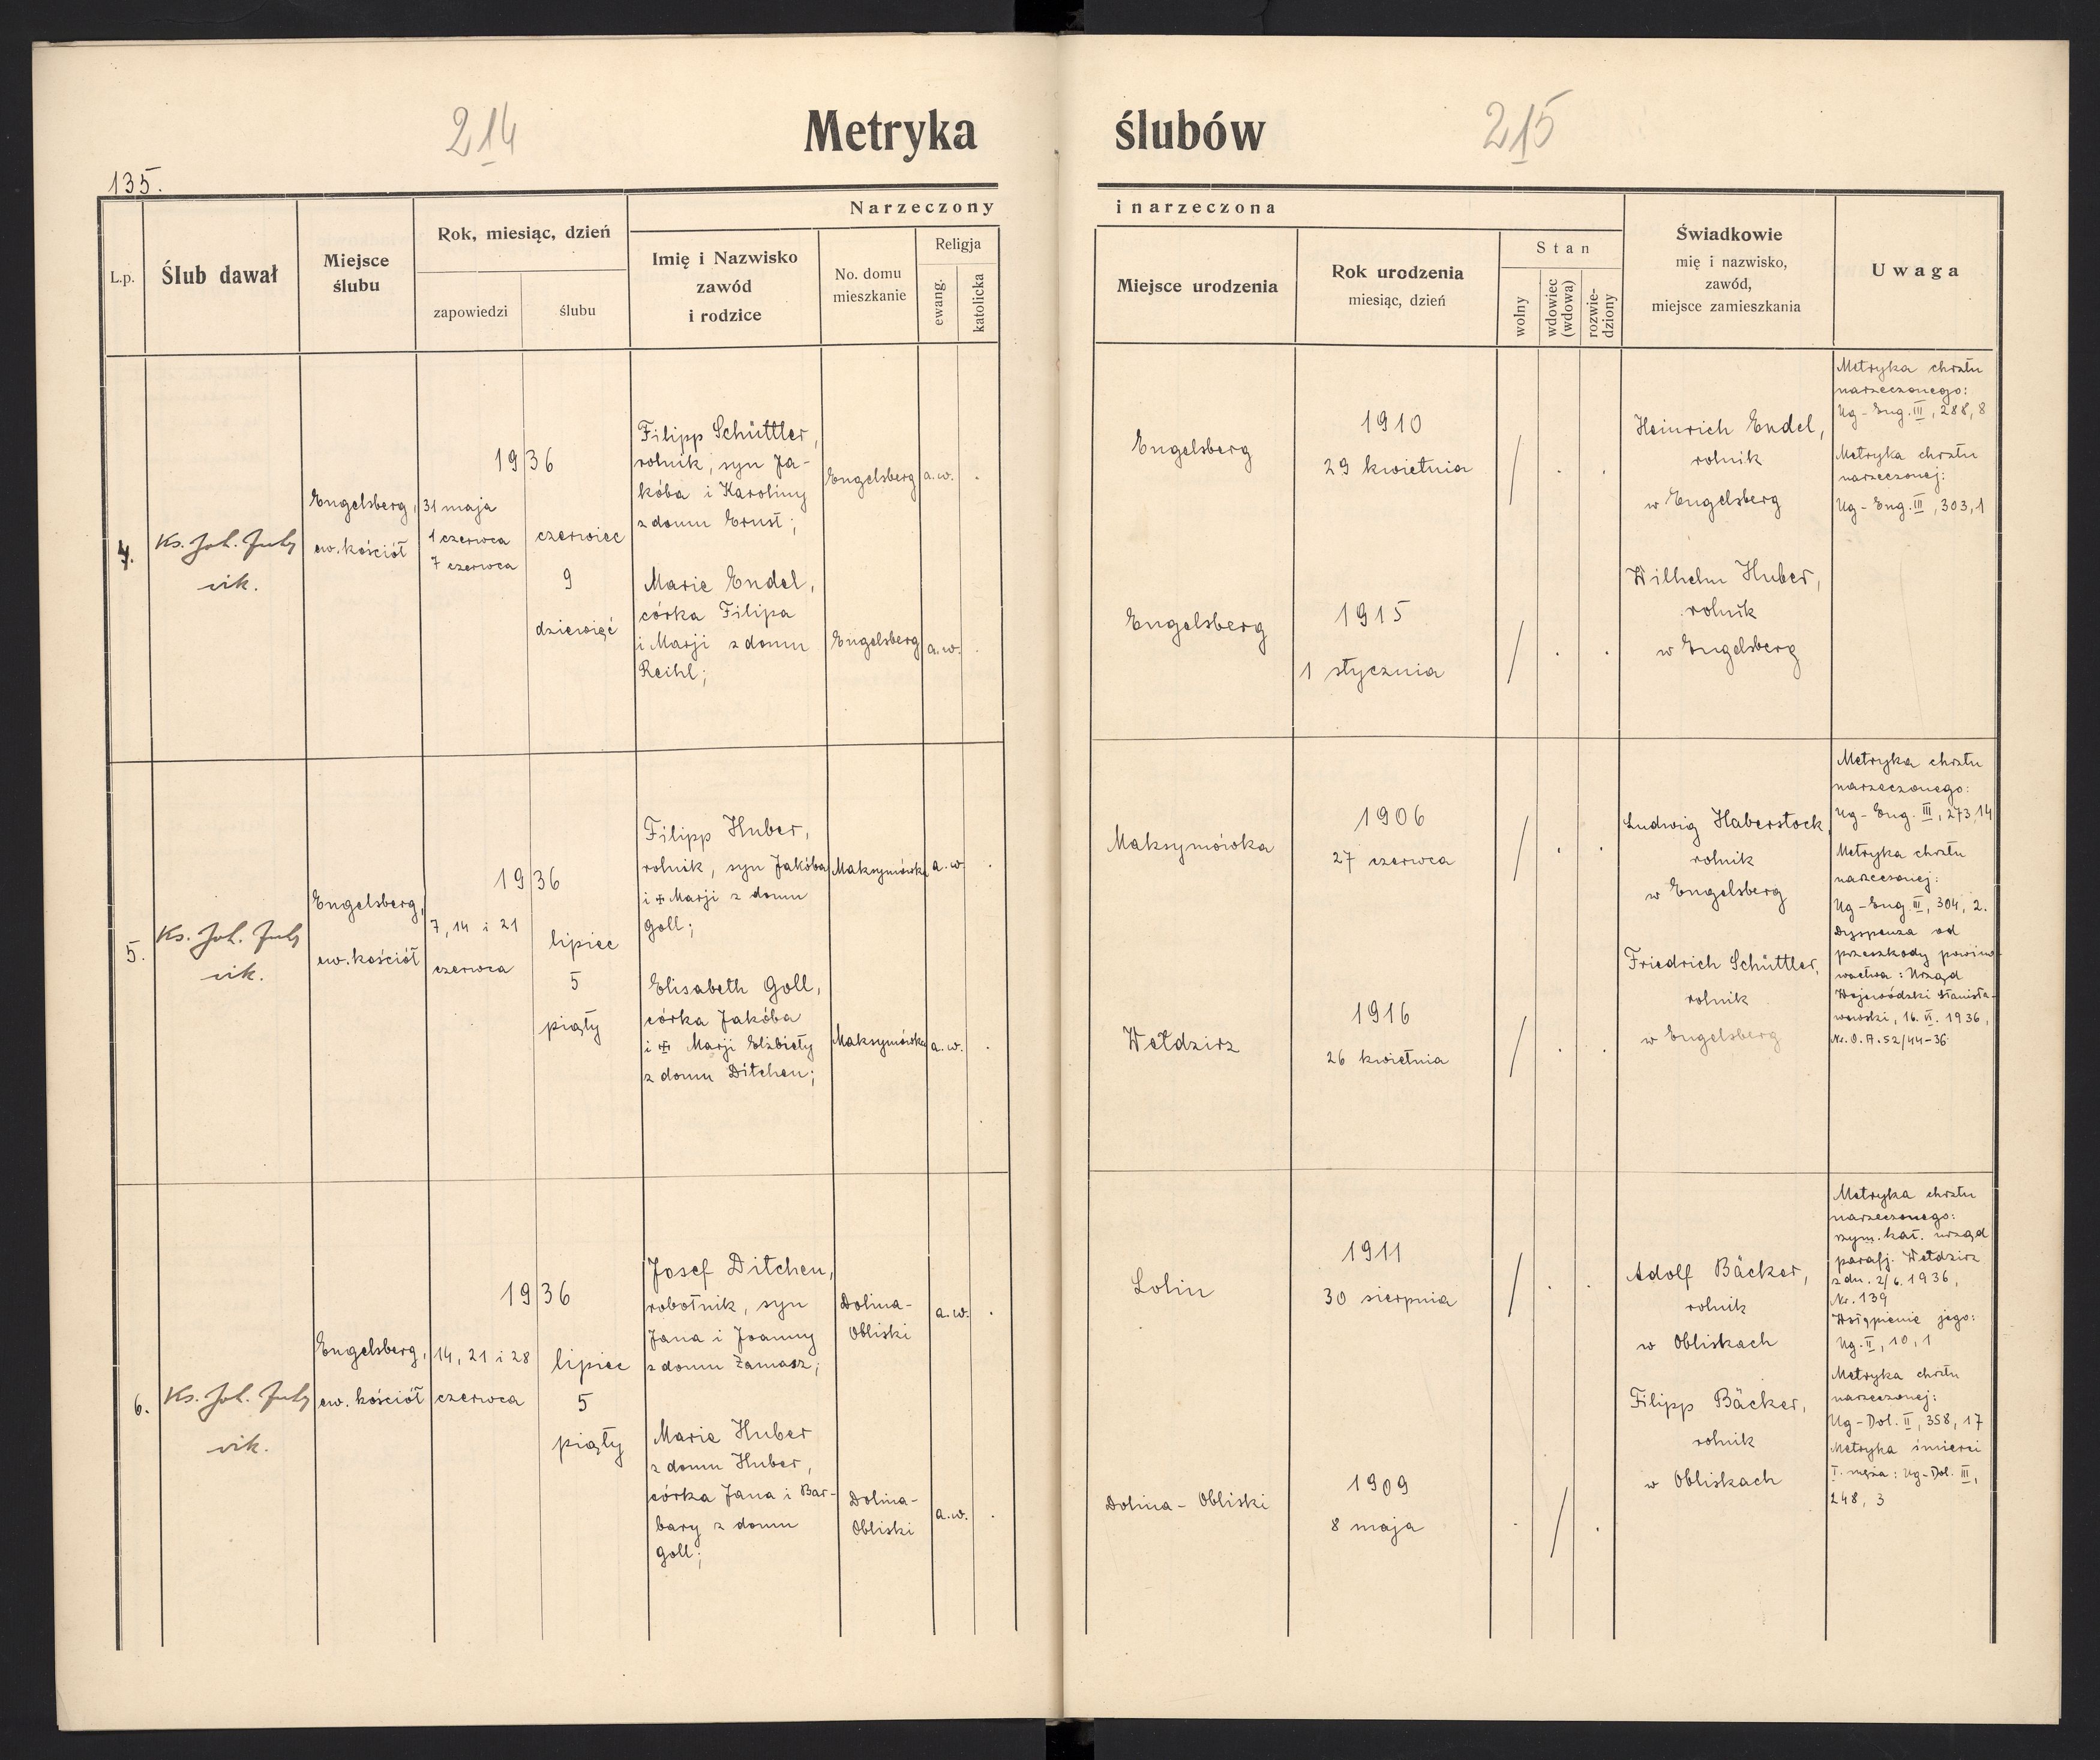 214
Metryka
ślubów
215
135.
L.p.
Ślub dawał
Miejsce
ślubu
Rok, miesiąc, dzień
zapowiedzi
ślubu
Narzeczony
Imię i Nazwisko
zawód
i rodzice
No. domu
mieszkanie
Religja
ewang.
katolicka
i narzeczona
Miejsce urodzenia
Rok urodzenia
miesiąc, dzień
Stan
wolny
wdowiec
(wdowa)
rozwie-
dziony
Świadkowie
mię i nazwisko,
zawód,
miejsce zamieszkania
Uwaga
4.
Ks. Joh.
vik.
Engelsberg,
ew. kościół
1936
31 maja
1 czerwca
7 czerwca
czerwiec
9
dziewięć
Filipp Schüttler,
rolnik, syn Ja-
kóba i Karoliny
z domu Ernst;
Engelsberg
a.w.
Marie Endel,
córka Filipa
i Marji z domu
Reihl;
Engelsberg
a.w.
Engelsberg
1910
29 kwietnia
Engelsberg
1915
1 stycznia
Heinrich Endel,
rolnik
w Engelsberg
Wilhelm Huber,
rolnik
w Engelsberg
Metryka chrztu
narzeczonego:
Ug-Eng. III, 288, 8
Metryka chrztu
narzeczonej:
Ug-Eng. III, 303, 1
5.
Ks. Joh.
vik.
Engelsberg,
ew. kościół
1936
7, 14 i 21
czerwca
lipiec
5
piąty
Filipp Huber,
rolnik, syn Jakóba
i ✠ Marji z domu
Goll;
Maksymówka
a.w.
Elisabeth Goll,
córka Jakóba
i ✠ Marji Elżbiety
z domu Ditchen;
Maksymówka
a.w.
Maksymówka
1906
27 czerwca
Wełdzirz
1916
26 kwietnia
Ludwig Haberstock,
rolnik
w Engelsberg
Friedrich Schüttler,
rolnik
w Engelsberg
Metryka chrztu
narzeczonego:
Ug-Eng. III, 273, 14
Metryka chrztu
narzeczonej:
Ug-Eng. III, 304, 2.
Dyspenza od
przeszkody powino-
wactwa: Urząd
Wojewódzki Stanisła-
wowski, 16. VI. 1936,
Nr. O.A. 52/44-36
6.
Ks. Joh.
vik.
Engelsberg,
ew. kościół
1936
14, 21 i 28
czerwca
lipiec
5
piąty
Josef Ditchen,
robotnik, syn
Jana i Joanny
z domu Zamasz;
Dolina-
Obliski
a.w.
Marie Huber
z domu Huber,
córka Jana i Bar-
bary z domu
Goll;
Dolina-
Obliski
a.w.
Lolin
1911
30 sierpnia
Dolina-Obliski
1909
8 maja
Adolf Bäcker,
rolnik
w Obliskach
Filipp Bäcker,
rolnik
w Obliskach
Metryka chrztu
narzeczonego:
rzym. kat. urząd
parafj. Wełdzirz
z dn. 2/6. 1936,
Nr. 139
Wstąpienie jego:
Ug. II, 10, 1
Metryka chrztu
narzeczonej:
Ug-Dol. II, 358, 17
Metryka śmierci
I. męża: Ug-Dol. III,
248, 3